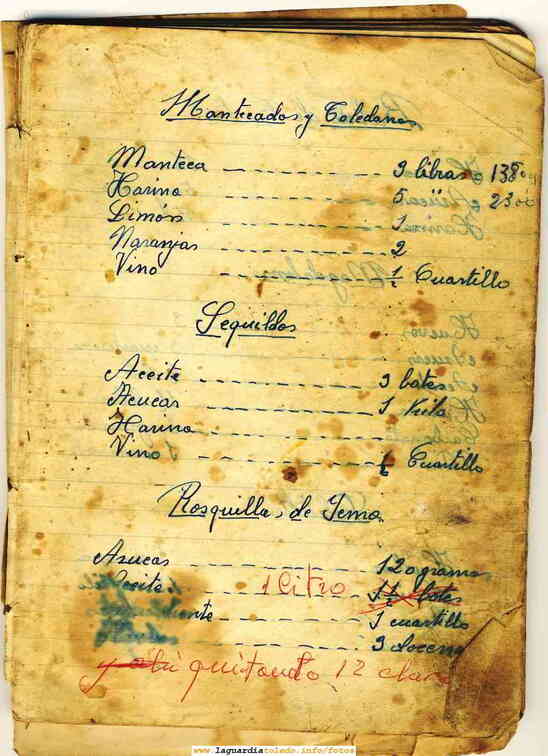 Mantecados y Toledanos
Manteca ---- 3 libras 1380
Harina ---- 5 " 2300
Limón ---- 1
Naranjas ---- 2
Vino ---- ½ Cuartillo
Sequillos
Aceite ---- 3 botes
Azucar ---- 1 Kilo
Harina ----
Vino ---- ½ Cuartillo
Rosquillas de Yema
Azucar ---- 120 gramos
Aceite 1 litro 1½ botes
1 cuartillo
3 docena
quitando 12 claras
www.laguardiatoledo.info/fotos